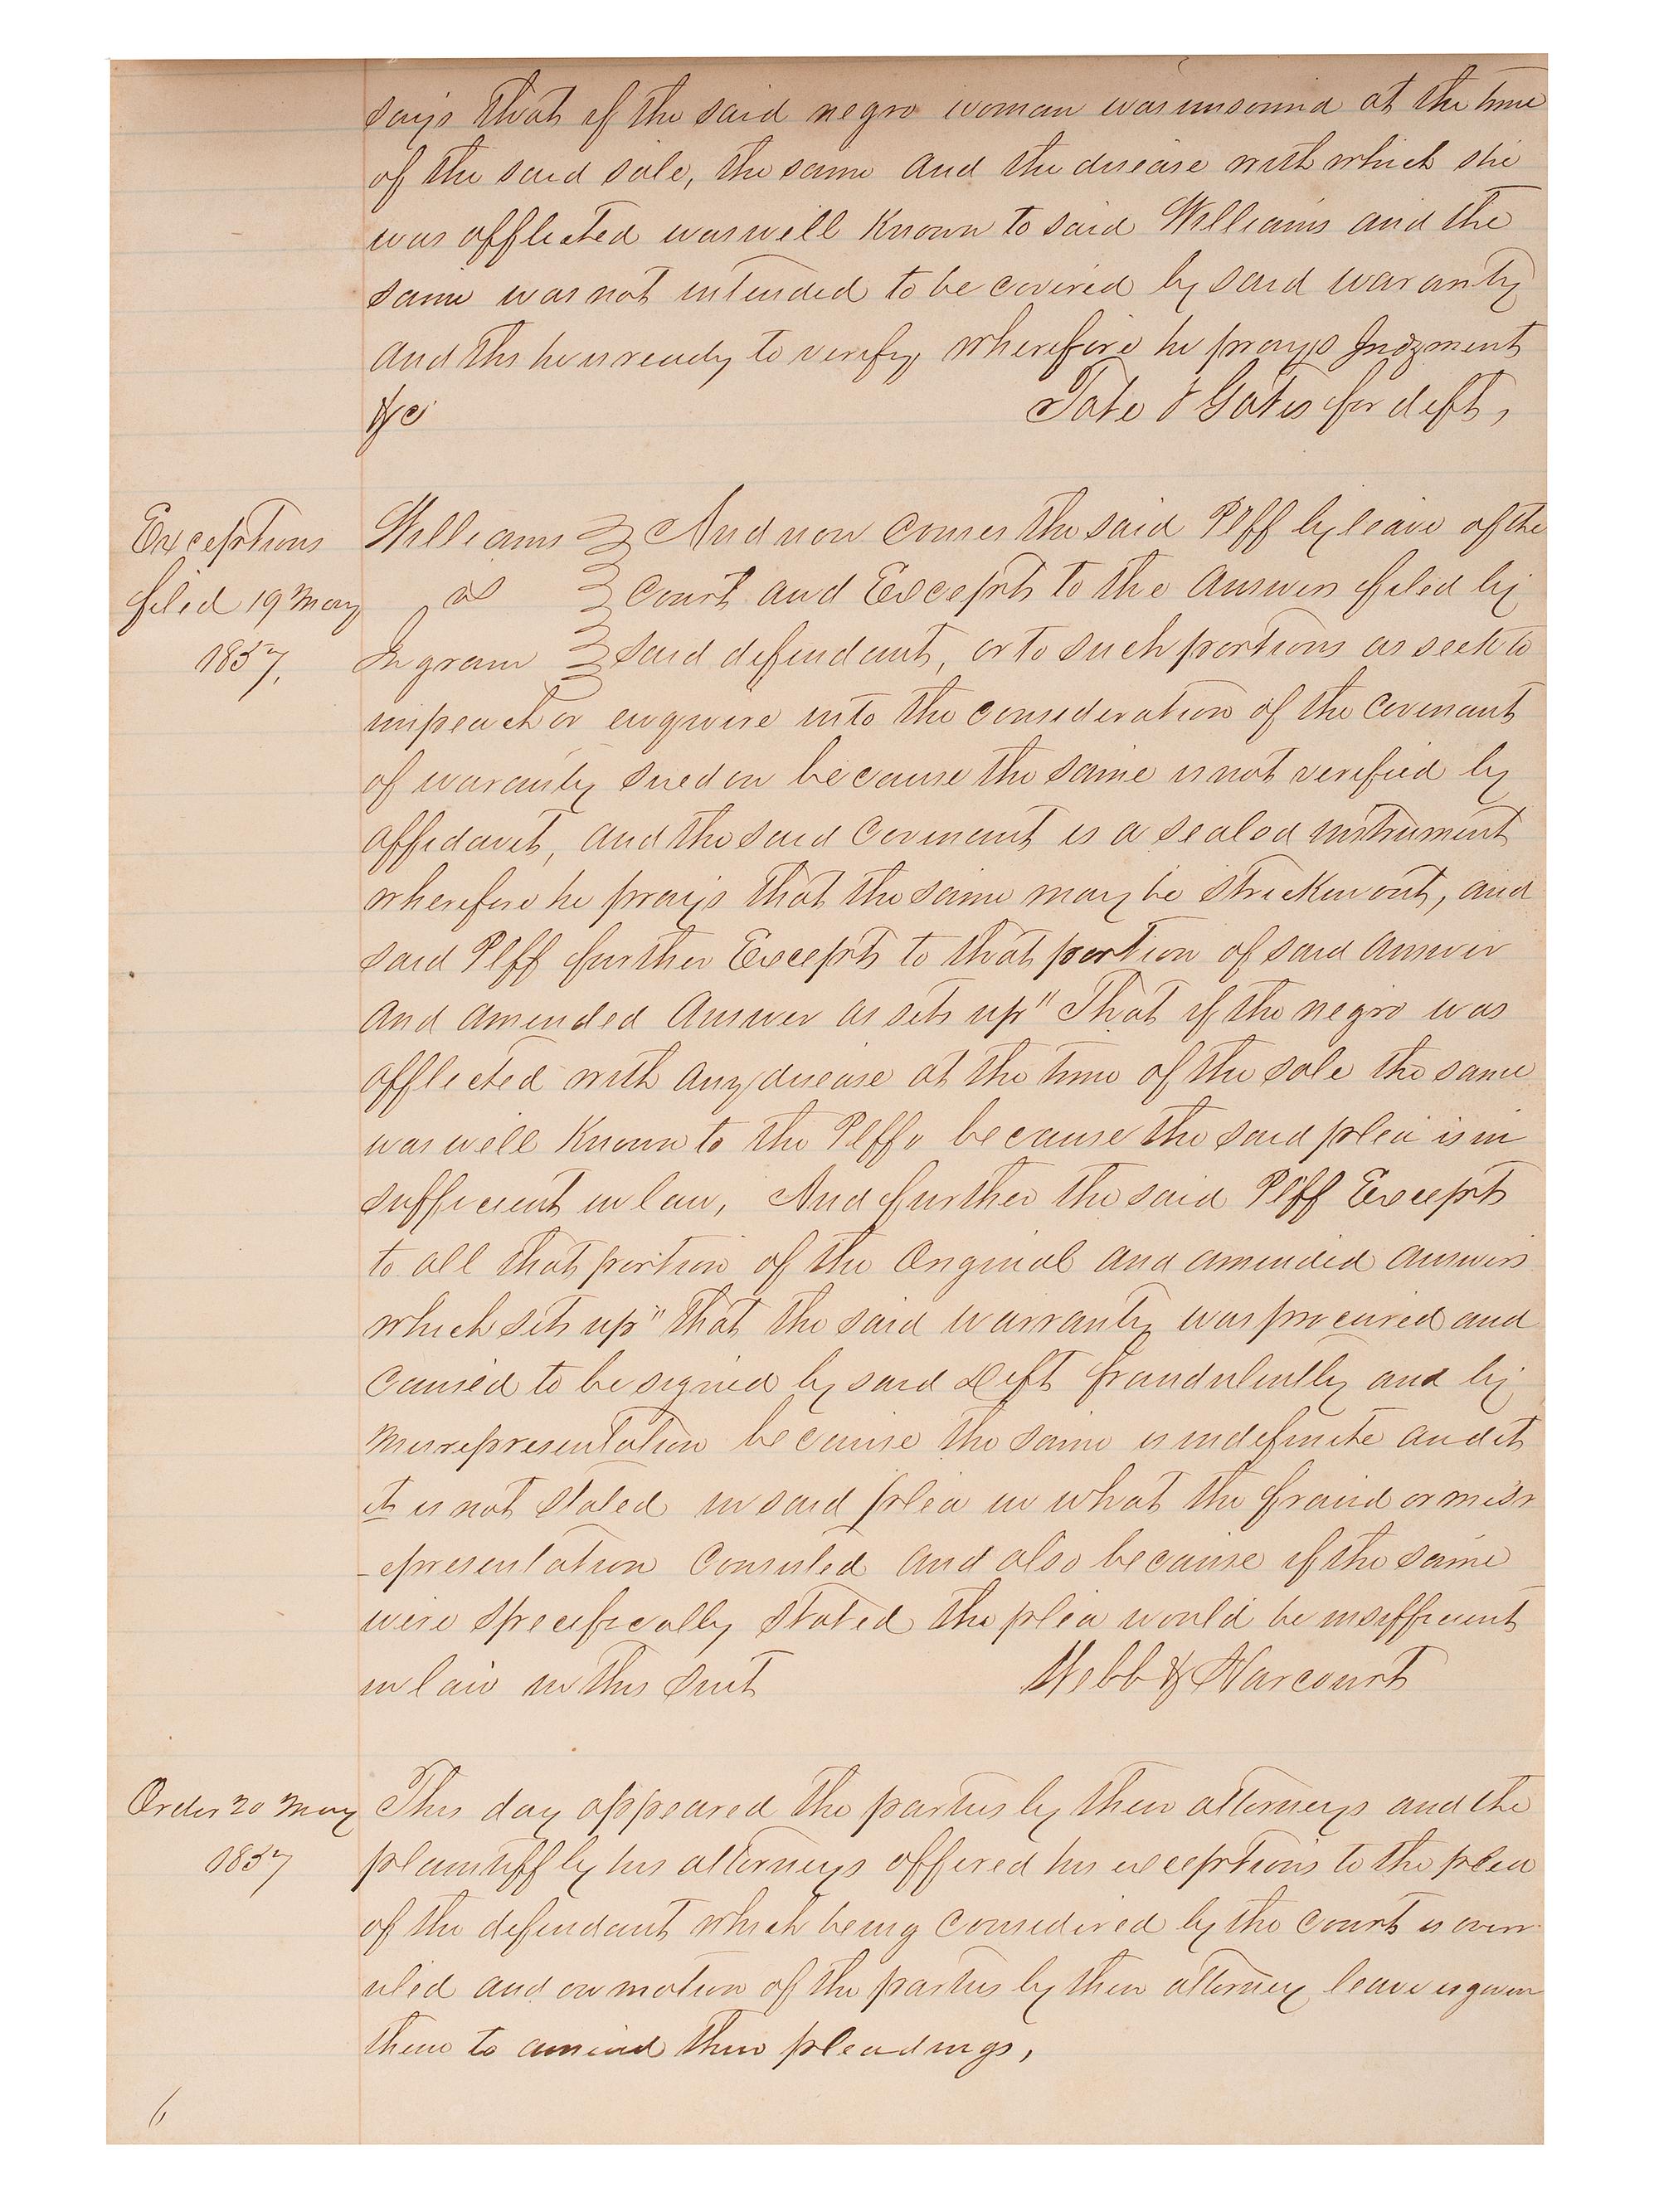 says that if the said negro woman was unsound at the time
of the said sale, the same and the disease with which she
was afflicted was well Known to said Williams and the
same was not intended to be covered by said waranty
and this he is ready to verify, wherefore he prays Judgment
&c Tate & Gates for deft,
Exceptions
filed 19 May
1857,
Williams And now comes the said Plff by leave of the
vs Court and Excepts to the answer filed by
Ingram said defendant, or to such portions as seek to
impeach or enquire into the consideration of the covenant
of waranty sued on because the same is not verified by
affidavit, and the said covenant is a sealed instrument
wherefore he prays that the same may be stricken out, and
said Plff further Excepts to that portion of said answer
and amended answer as sets up "That if the negro was
afflicted with any disease at the time of the sale the same
was well Known to the Plff" because the said plea is in
sufficient in law, And further the said Plff Excepts
to all that portion of the Original and amended answers
which sets up "that the said warranty was procured and
caused to be signed by said Deft fraudulently and by
misrepresentation because the same is indefinite and it
it is not stated in said plea in what the fraud or misr
-epresentation Consisted and also because if the same
were specifically stated the plea would be insufficient
in law in this suit Webb & Harcourt
Order 20 May
1857
This day appeared the parties by their attorneys and the
plaintiff by his attorneys offered his exceptions to the plea
of the defendant which being considered by the court is over
uled and on motion of the parties by their attorney leave is given
them to amend their pleadings,
6